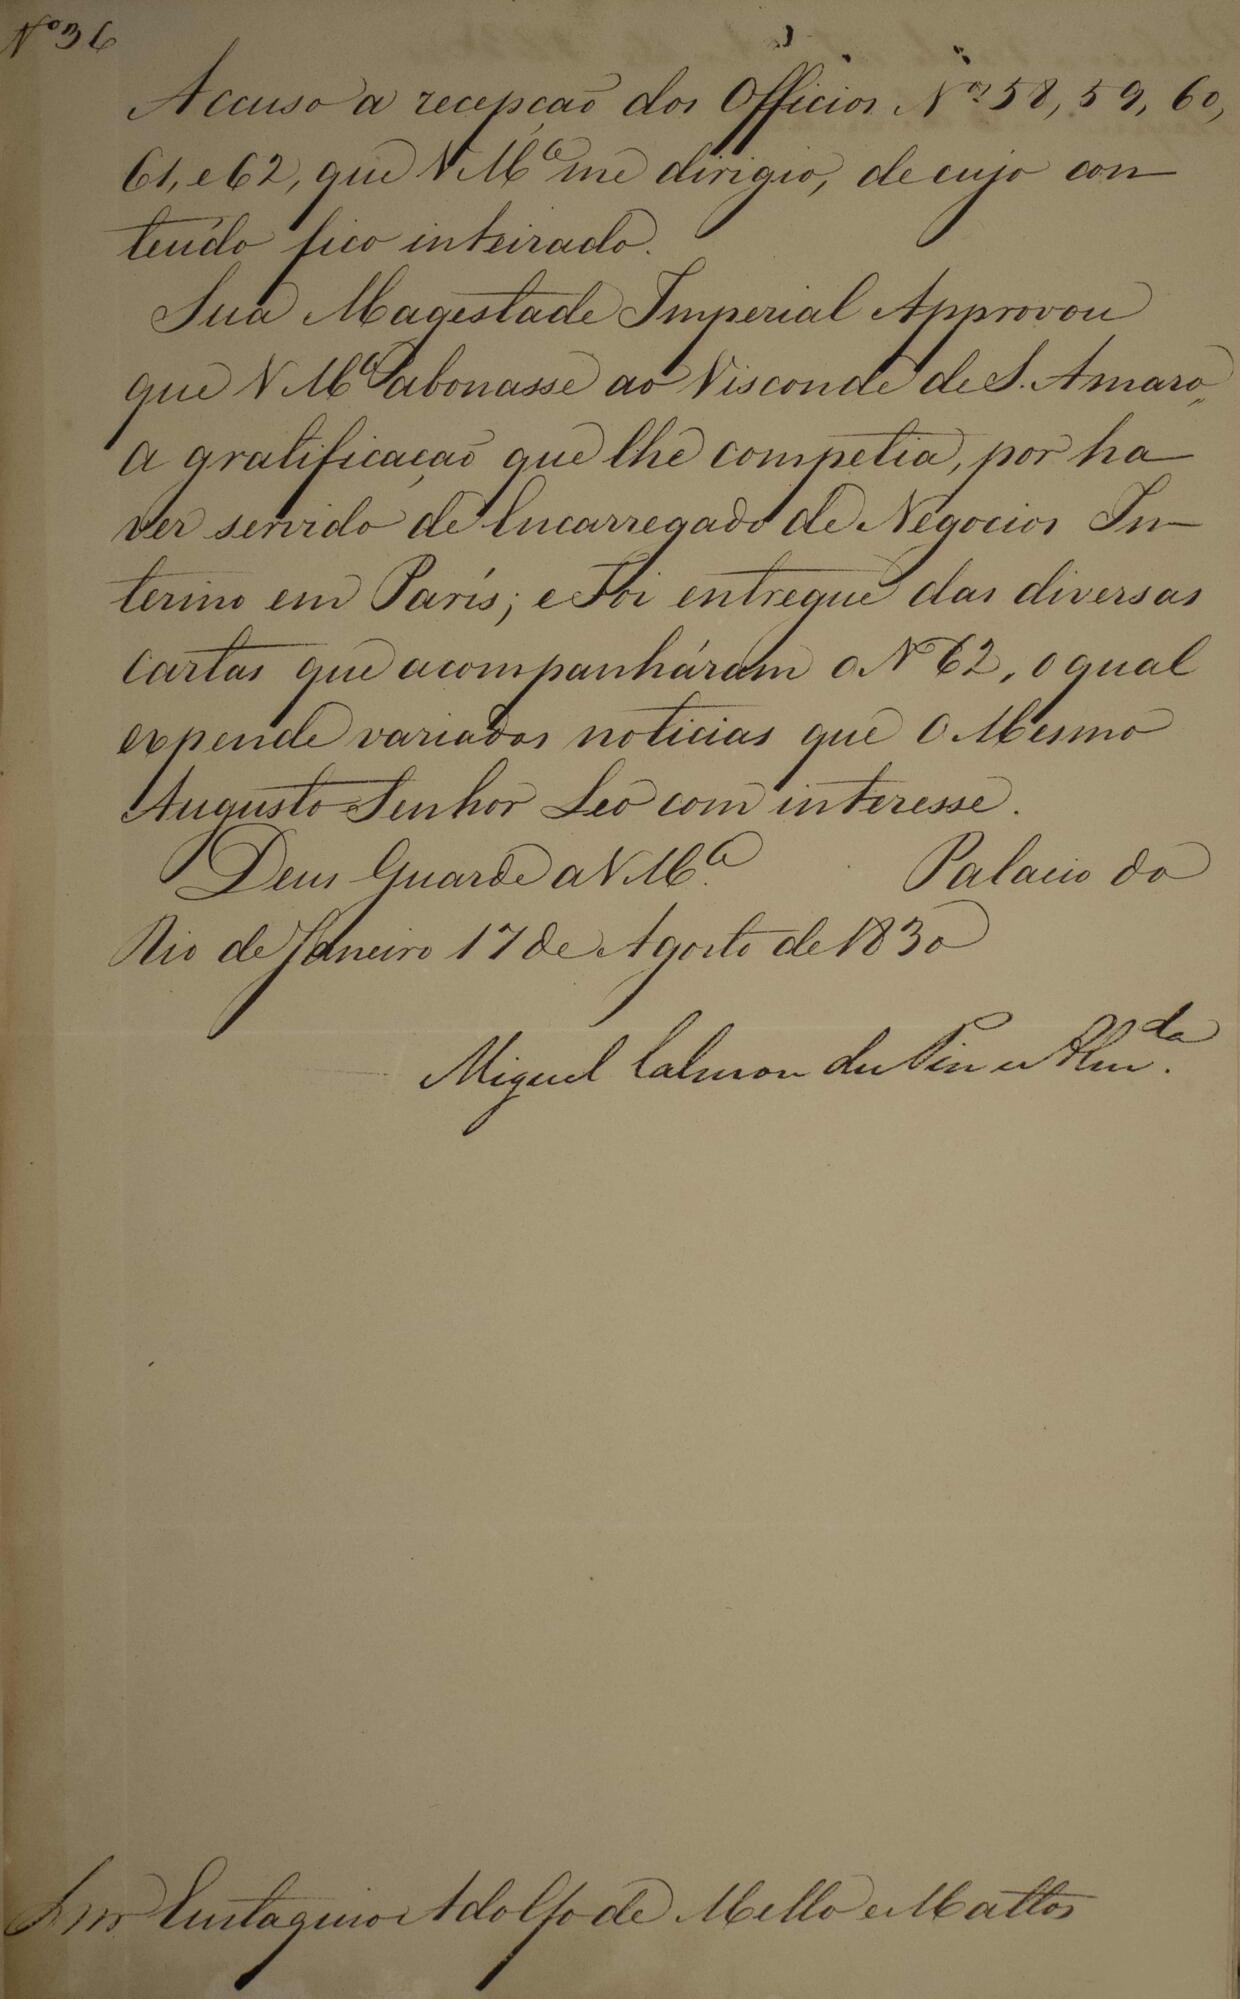 Nº 36
Accuso a recepção dos Officios Nos 58, 59, 60,
61, e 62, que V Mce me dirigio, de cujo con-
teúdo fico inteirado.
Sua Magestade Imperial Approvou
que V Mce abonasse ao Visconde de S. Amaro,
a gratificação que lhe competia, por ha-
ver servido de Encarregado de Negocios In-
terino em París; e Foi entregue das diversas
cartas que acompanháram o Nº 62, o qual
expende variadas noticias que O Mesmo
Augusto Senhor Leo com interesse.
Deus Guarde a V Mce. Palacio do
Rio de Janeiro 17 de Agosto de 1830
Miguel Calmon du Pin e Almda.
Snr Eustaquio Adolfo de Mello e Mattos